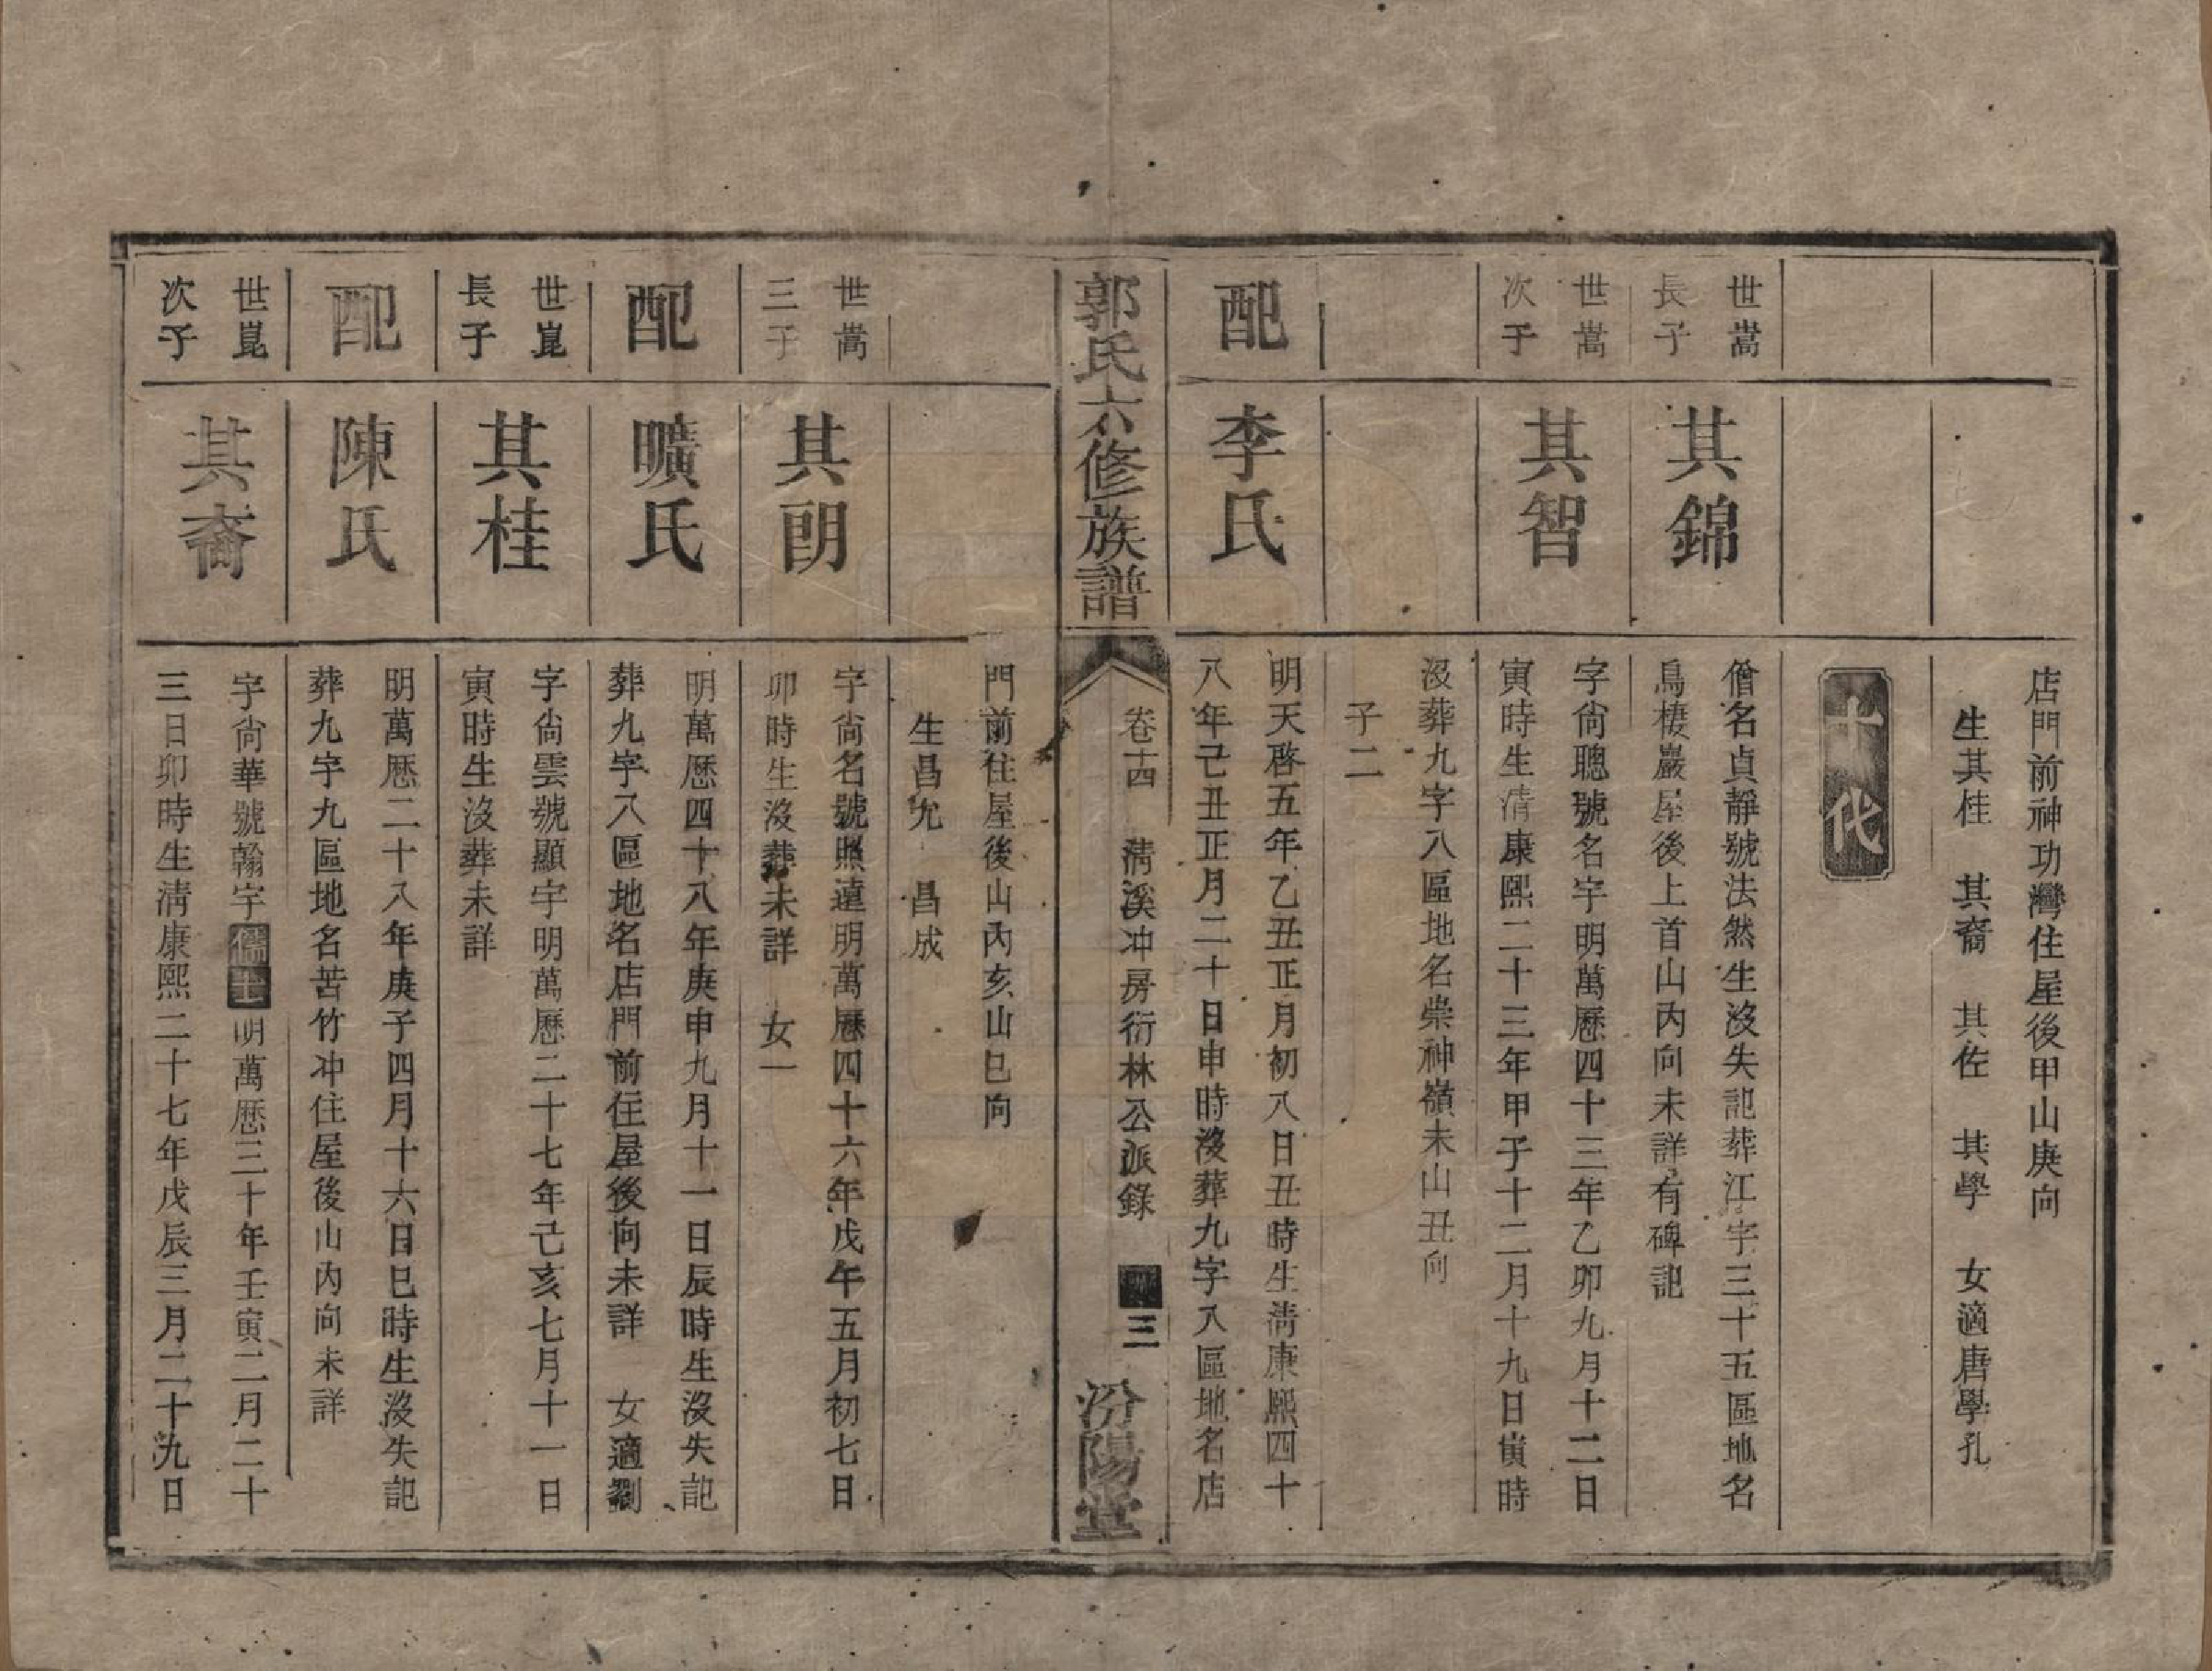 店門前神功灣住屋後甲山庚向
生其桂　其裔　其佐　其學　女適唐學孔
十代
世嵩
長子
其錦
僧名貞靜號法然生沒失記葬江字三十五區地名
鳥棲巖屋後上首山內向未詳有碑記
世嵩
次子
其智
字尙聰號名宇明萬曆四十三年乙卯九月十二日
寅時生清康熙二十三年甲子十二月十九日寅時
沒葬九字八區地名崇神嶺未山丑向
子二
配
李氏
明天啓五年乙丑正月初八日丑時生清康熙四十
八年己丑正月二十日申時沒葬九字八區地名店
郭氏六修族譜
卷十四　清溪冲房衍林公派錄
三
汾陽堂
門前住屋後山內亥山巳向
生昌允　昌成
世嵩
三子
其朗
字尙名號照遠明萬曆四十六年戊午五月初七日
卯時生沒葬未詳　女一
配
曠氏
明萬曆四十八年庚申九月十一日辰時生沒失記
葬九字八區地名店門前住屋後向未詳　女適劉
世崑
長子
其桂
字尙雲號顯宇明萬曆二十七年己亥七月十一日
寅時生沒葬未詳
配
陳氏
明萬曆二十八年庚子四月十六日巳時生沒失記
葬九字九區地名苦竹冲住屋後山內向未詳
世崑
次子
其裔
字尙華號翰宇儒士明萬曆三十年壬寅二月二十
三日卯時生淸康熙二十七年戊辰三月二十九日